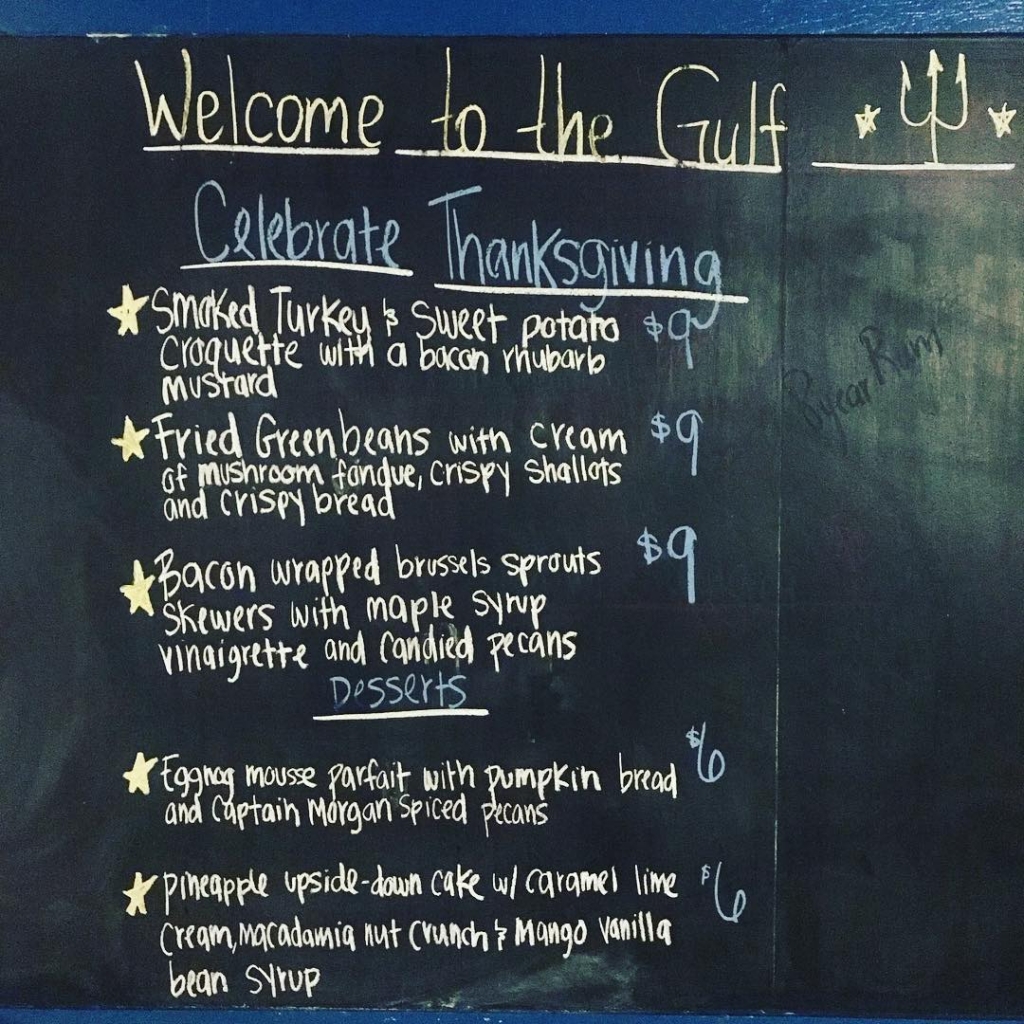 Welcome to the Gulf
Celebrate Thanksgiving
Smoked Turkey & Sweet potato $9
croquette with a bacon rhubarb
mustard
Fried Green beans with cream $9
of mushroom fondue, crispy shallots
and crispy bread
Bacon wrapped brussels sprouts $9
skewers with maple syrup
vinaigrette and candied pecans
Desserts
Eggnog mousse parfait with pumpkin bread $6
and Captain Morgan Spiced pecans
pineapple upside-down cake w/ caramel lime $6
cream, macadamia nut crunch & Mango vanilla
bean syrup
8 year Rum